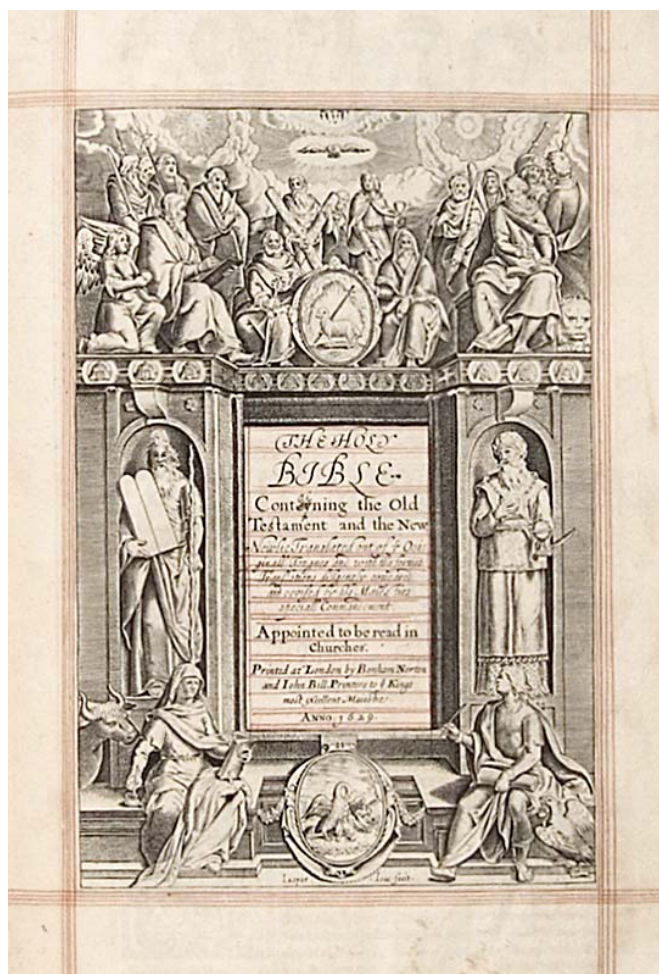 THE HOLY
BIBLE
Conteyning the Old
Testament and the New
Newlie Translated out of ye Ori=
ginall Tongues and with the former
Translations diligently compared
and revised by his Maiesties
speciall Commandment.
Appointed to be read in
Churches.
Printed at London by Bonham Norton
and Iohn Bill. Printers to ye Kings
most excellent Maiestie.
ANNO. 1629.
Iaspar fecit.